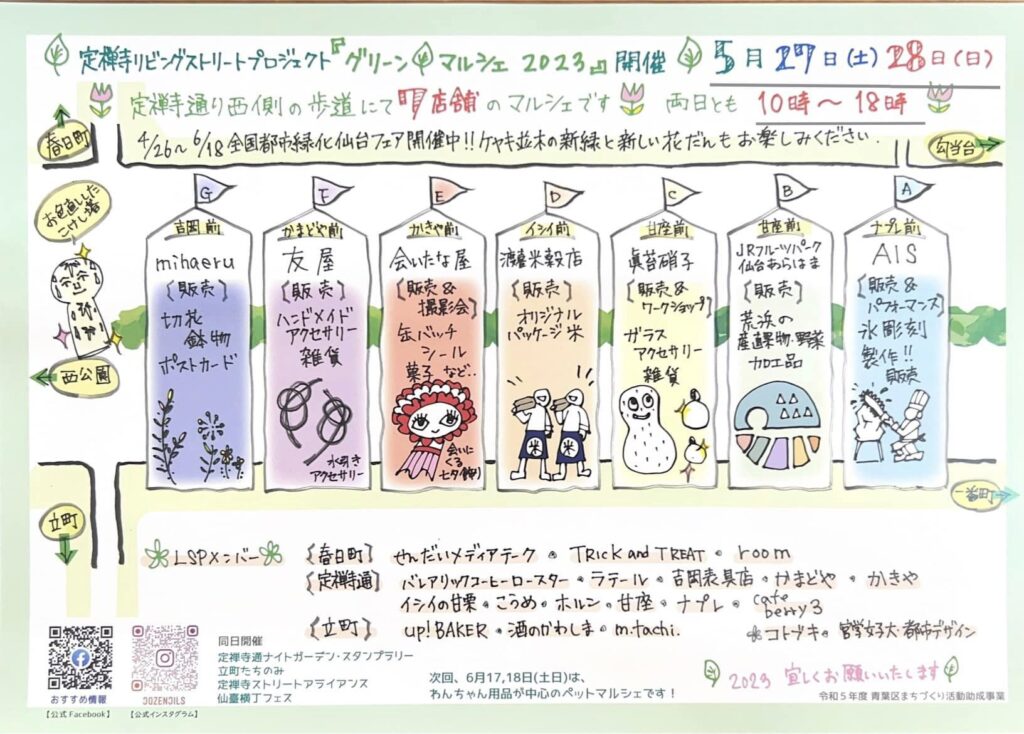 定禅寺リビングストリートプロジェクト『グリーンマルシェ 2023』開催 5月27日(土)28日(日)
定禅寺通り西側の歩道にて7店舗のマルシェです 両日とも 10時〜18時
4/26〜6/18全国都市緑化仙台フェア開催中!!ケヤキ並木の新緑と新しい花だんもお楽しみください.
春日町
勾当台
お色直しした
こけし塔
西公園
立町
一番町
G
吉岡前
mihaeru
〔販売〕
切花
鉢物
ポストカード
F
かまどや前
友屋
〔販売〕
ハンドメイド
アクセサリー
雑貨
水引き
アクセサリー
E
かきや前
会いたな屋
〔販売&
撮影会〕
缶バッチ
シール
菓子など..
会いに
くる
七夕(飾)
D
イシイ前
渡喜米穀店
〔販売〕
オリジナル
パッケージ米
米
米
C
甘座前
眞苔硝子
〔販売&
ワークショップ〕
ガラス
アクセサリー
雑貨
B
甘座前
JRフルーツパーク
仙台あらはま
〔販売〕
荒浜の
産直果物・野菜
加工品
A
ナプレ前
AIS
〔販売&
パフォーマンス〕
氷彫刻
製作!!
販売
LSPメンバー
〔春日町〕 せんだいメディアテーク・TRICK and TREAT・room
〔定禅寺通〕 バレアリックコーヒーロースター・ラテール・吉岡表具店・かまどや・かきや
イシイの甘栗・こうめ・ホルン・甘座・ナプレ・cafe berry 3
〔立町〕 up! BAKER・酒のかわしま・m.tachi.
コトブキ・宮学女子大・都市デザイン
同日開催
定禅寺通ナイトガーデン・スタンプラリー
立町たちのみ
定禅寺ストリートアライアンス
仙臺横丁フェス
次回、6月17,18日(土日)は、
わんちゃん用品が中心のペットマルシェです!
2023 宜しくお願いいたします
令和5年度 青葉区まちづくり活動助成事業
おすすめ情報
【公式Facebook】
JOZENJILS
【公式インスタグラム】